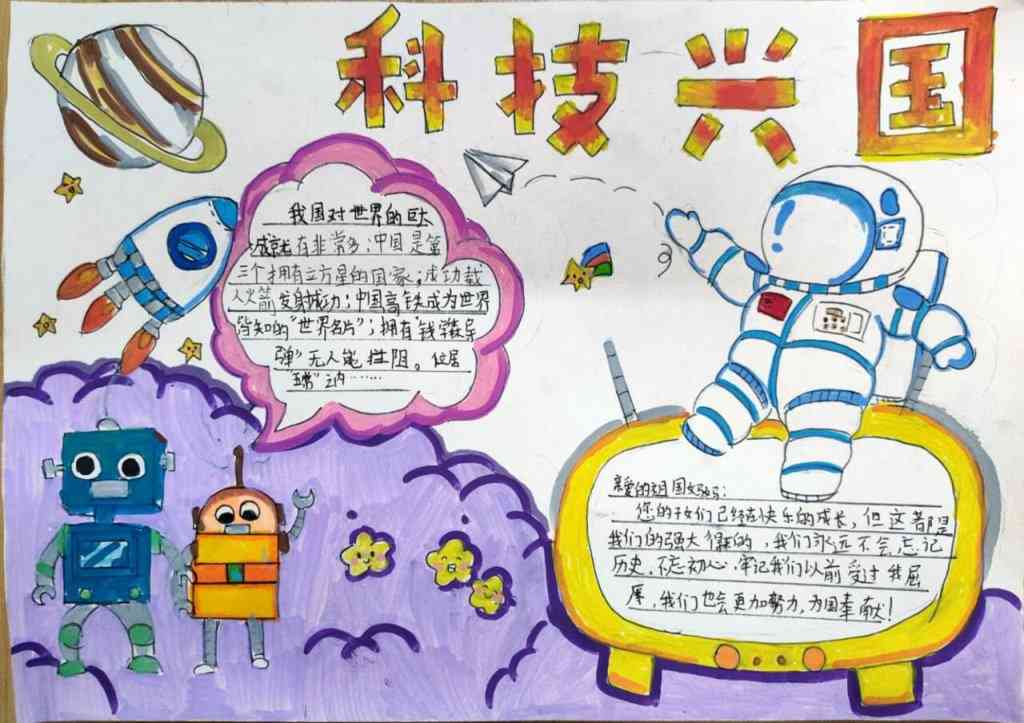 科技兴国
我国对世界的巨大
成就有非常多:中国是第
三个拥有三方星的国家;成功载
人火箭发射成功;中国高铁成为世界
皆知的"世界名片";拥有"钱学森导
弹"无人能拦阻。位居
"五常"之内……
亲爱的祖国妈妈:
您的子女们已经在快乐的成长,但这都是
我们的强大得的,我们永远不会忘记
历史,不忘初心,牢记我们以前受过我屈
辱,我们也会更加努力,为国奉献!